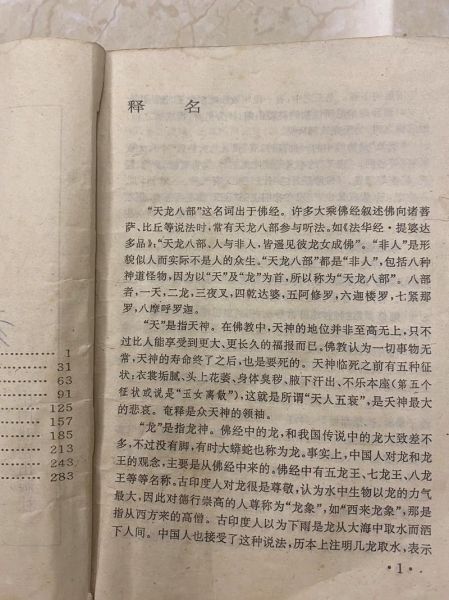 1
31
63
91
125
157
185
213
243
283
释 名
“天龙八部”这名词出于佛经。许多大乘佛经叙述佛向诸菩
萨、比丘等说法时,常有天龙八部参与听法。如《法华经·提婆达
多品》:“天龙八部、人与非人,皆遥见彼龙女成佛”。“非人”是形
貌似人而实际不是人的众生。“天龙八部”都是“非人”,包括八种
神道怪物,因为以“天”及“龙”为首,所以称为“天龙八部”。八部
者,一天,二龙,三夜叉,四乾达婆,五阿修罗,六迦楼罗,七紧那
罗,八摩呼罗迦。
“天”是指天神。在佛教中,天神的地位并非至高无上,只不
过比人能享受到更大、更长久的福报而已。佛教认为一切事物无
常,天神的寿命终了之后,也是要死的。天神临死之前有五种征
状:衣裳垢腻、头上花萎、身体臭秽、腋下汗出、不乐本座(第五个
征状或说是“玉女离散”),这就是所谓“天人五衰”,是天神最大
的悲哀。帝释是众天神的领袖。
“龙”是指龙神。佛经中的龙,和我国传说中的龙大致差不
多,不过没有脚,有时大蟒蛇也称为龙。事实上,中国人对龙和龙
王的观念,主要是从佛经中来的。佛经中有五龙王、七龙王、八龙
王等等名称。古印度人对龙很是尊敬,认为水中生物以龙的力气
最大,因此对德行崇高的人尊称为“龙象”,如“西来龙象”,那是
指从西方来的高僧。古印度人以为下雨是龙从大海中取水而洒
下人间。中国人也接受了这种说法,历本上注明几龙取水,表示
·1·